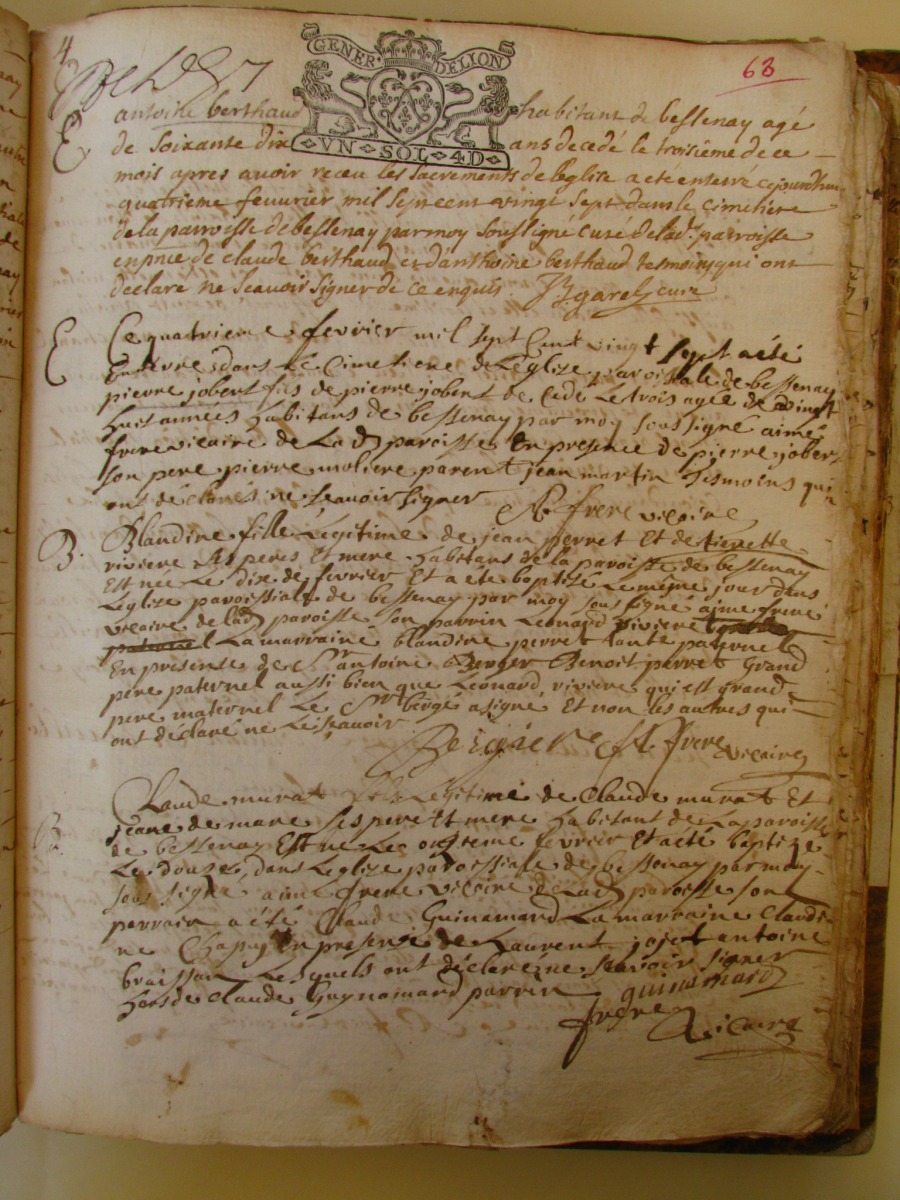 4
GENER DE LION
63
antoine berthaud habitant de bessenay agé
E
de soixante dix ans decedé le troisieme de ce
UN SOL 4D
mois apres avoir receu les sacrements de leglise a ete enterré cejourdhuy
quatrieme feuvrier mil sept cent vingt sept dans le cimetiere
de la parroisse de bessenay par moy soussigné curé de lad. parroisse
en pnce de claude berthaud et danthoine berthaud tesmoins qui ont
declaré ne sçavoir signer de ce enquis curé
E
Ce quatrieme fevrier mil sept Cent vingt sept a été
Enterré dans Le Cimetiere de Léglize paroissiale de bessenay
pierre jobert fils de pierre jobert de Cedé Le trois agée de vingt
huit années habitans de bessenay par moy sous signé aimé
frere vicaire de La d paroisse En presence de pierre jobert
son pere pierre moliere parent jean martin Tesmoins qui
ont déclarés ne sçavoir signer
A. frere vicaire
B.
Blandine fille Legitime de jean perret Et de pierette
riviere ses peres Et mere habitans de la paroisse de bessenay
Est née Le dix de fevrier Et a été baptizé Le même jour dans
Leglize paroissiale de bessenay par moy sous signé aimé frere
vicaire de lad paroisse son parrin Leonard riviere
La marraine blandine perret tante paternel
En presense de Sr antoine Berger Benoit perret Grand
pere paternel aussi bien que Leonard riviere qui est grand
pere maternel Le Sr bergé a signé Et non les autres qui
ont déclaré ne Le sçavoir
A. frere vicaire
B.
Claude murat fils Legitime de Claude murat Et
jeane de mare ses pere Et mere habitant de La paroisse
de bessenay Est né Le onzieme fevrier Et a été baptizé
Le douse, dans Leglize paroissiale de bessenay par moy
sous signé aimé frere vicaire de Lad paroisse son
parrain a été Claude Guinamard La marraine Claudi
ne Chapuy En presense de Laurent antoine
braisson Lesquels ont déclarézne sçavoir signer
hors de Claude Guynamard parrin
guinamard
frere vicaire